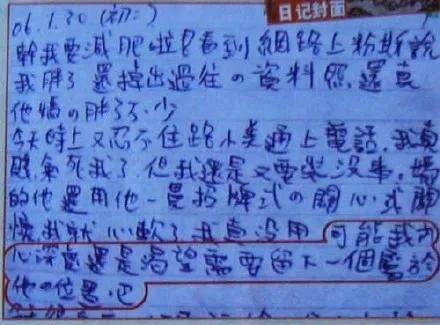 日记封面
06.1.30（初二）
幹我要減肥啦只看到網路上粉絲說
我胖了還掉出過往の資料照還真
他媽の胖了不少
今天晚上又忍不住跟小美通上電話，我真
我還是又要裝沒事，媽
的他還用他一貫招牌式の關心或關
懷我就心軟了我真沒用 可能我內
心深處還是渴望需要留下一個屬於
他の位置吧